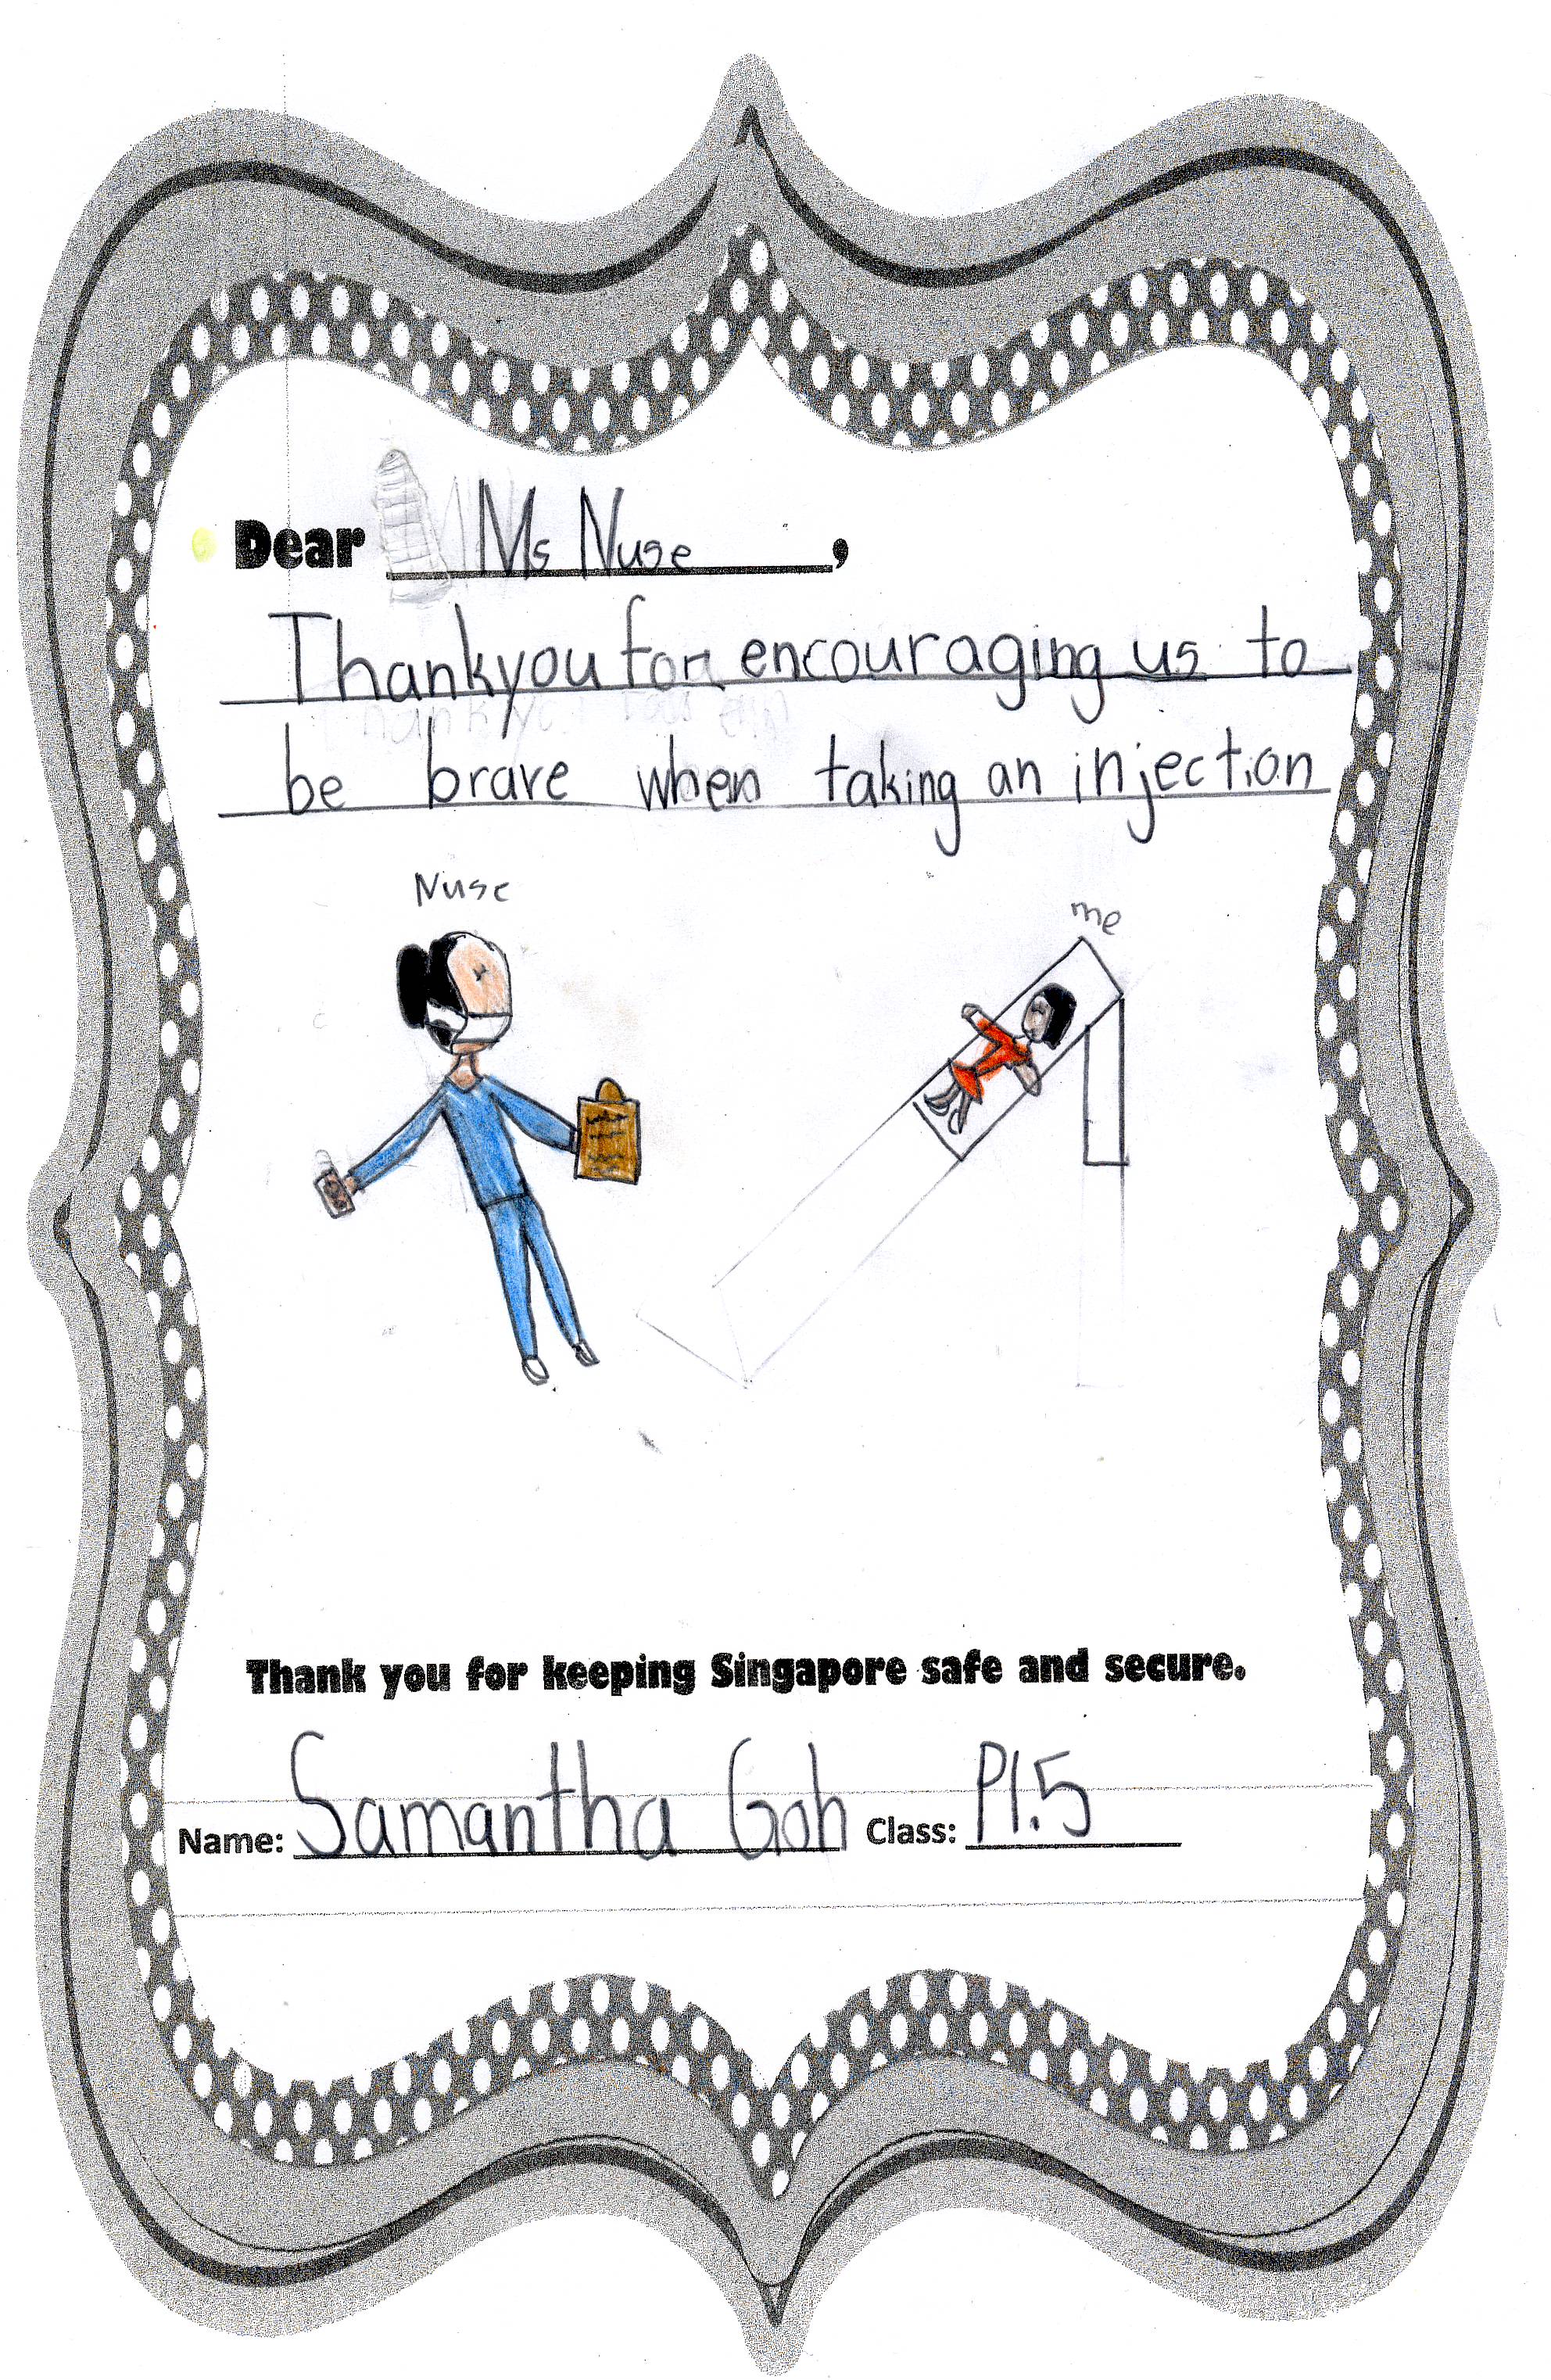 Dear Ms Nuse,
Thankyou for encouraging us to
be brave when taking an injection
Nuse
me
Thank you for keeping Singapore safe and secure.
Name: Samantha Goh Class: P1.5